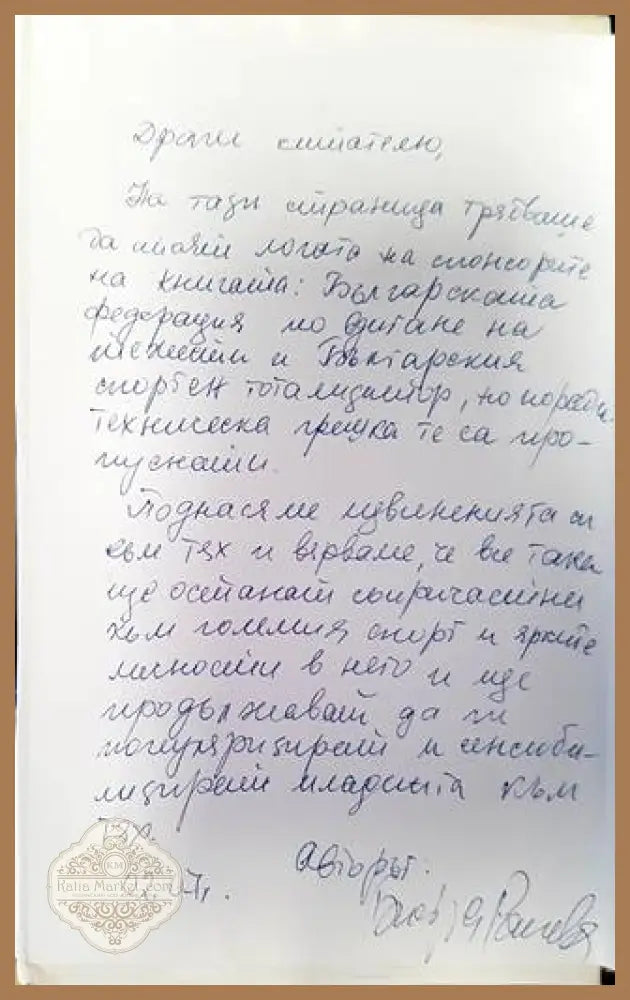 Драги читателю,
На тази страница трябваше
да стоят логата на спонсорите
на книгата: Българската
федерация по вдигане на
тежести и Българския
спортен тотализатор, но поради
техническа грешка те са про-
пуснати.
Поднасяме извиненията си
към тях и вярваме, че все така
ще останат съпричастни
към големия спорт и ярките
личности в него и ще
продължават да ги
популяризират и сенсиби-
лизират младежта към
тях.
Авторът:
KM
Katia Market.com